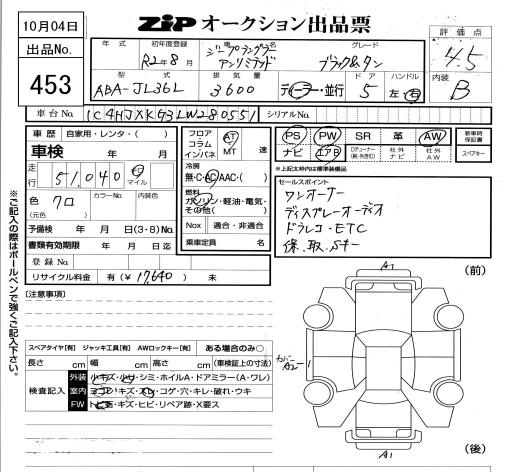 10月04日
ZIP オークション出品票
評価点
4.5
出品No.
453
年式
初年度登録
R2年8月
車名
ジープラングラー
アンリミテッド
グレード
ブラック&タン
型式
ABA-JL36L
排気量
3600
ディーラー・並行
ドア
5
ハンドル
左・右
内装
B
車台No.
1C4HJXKG3LW280551
シリアルNo.
車歴 自家用・レンタ・( )
車検 年 月
走行 51,040 マイル
色 クロ
(元色)
カラーNo.
内装色
予備検 年 月 日(3・8)No.
書類有効期限 年 月 日迄
登録No.
リサイクル料金 有(¥17,640) 無
フロア
コラム
インパネ
AT
MT
速
冷房
無・C・AC・AAC・( )
燃料
ガソリン・軽油・電気・
その他( )
Nox 適合・非適合
乗車定員 名
PS PW SR 革 AW
新車時
保証書
ナビ エアB
社外
ナビ
社外
AW
スペアキー
*上記太枠内は標準装備品
セールスポイント
ワンオーナー
ディスプレーオーディオ
ドラレコ・ETC
保、取、Sキー
※ご記入の際はボールペンで強くご記入下さい。
[注意事項]
スペアタイヤ[有] ジャッキ工具[有] AWロックキー[有] ある場合のみ○
長さ cm 幅 cm 高さ cm (車検証上の寸法)
検査記入
外装 小キズ・小凹・シミ・ホイルA・ドアミラー(A・ワレ)
室内 ヨゴレ・キズ・スレ・コゲ・穴・キレ・破れ・ウキ
FW トビ石・キズ・ヒビ・リペア跡・X要ス
(前)
A1
カバー
A2
A1
(後)